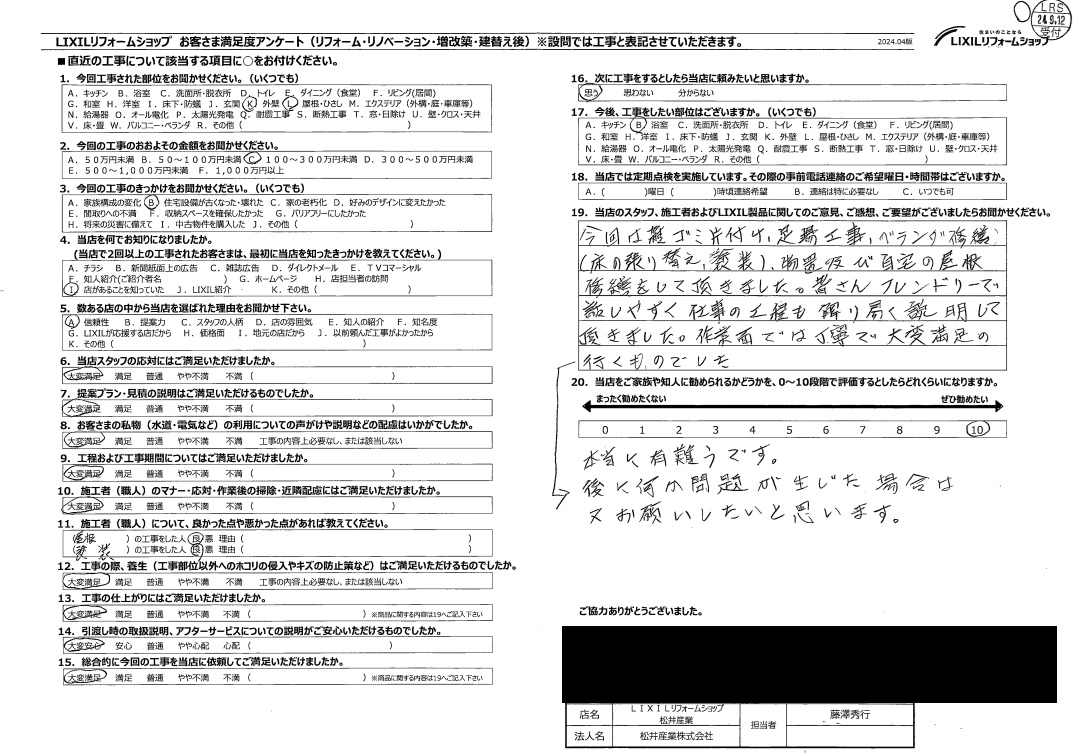 LRS
24.9.12
受付
LIXILリフォームショップ お客さま満足度アンケート（リフォーム・リノベーション・増改築・建替え後）※設問では工事と表記させていただきます。
2024.04版
住まいのことなら
LIXILリフォームショップ
■直近の工事について該当する項目に○をお付けください。
1．今回工事された部位をお聞かせください。（いくつでも）
A．キッチン B．浴室 C．洗面所・脱衣所 D．トイレ E．ダイニング（食堂） F．リビング(居間)
G．和室 H．洋室 I．床下・防蟻 J．玄関 K．外壁 L．屋根・ひさし M．エクステリア（外構・庭・車庫等）
N．給湯器 O．オール電化 P．太陽光発電 Q．耐震工事 S．断熱工事 T．窓・日除け U．壁・クロス・天井
V．床・畳 W．バルコニー・ベランダ R．その他（ ）
2．今回の工事のおおよその金額をお聞かせください。
A．50万円未満 B．50～100万円未満 C．100～300万円未満 D．300～500万円未満
E．500～1,000万円未満 F．1,000万円以上
3．今回の工事のきっかけをお聞かせください。（いくつでも）
A．家族構成の変化 B．住宅設備が古くなった・壊れた C．家の老朽化 D．好みのデザインに変えたかった
E．間取りへの不満 F．収納スペースを確保したかった G．バリアフリーにしたかった
H．将来の災害に備えて I．中古物件を購入した J．その他（ ）
4．当店を何でお知りになりましたか。
(当店で2回以上の工事されたお客さまは、最初に当店を知ったきっかけを教えてください。)
A．チラシ B．新聞紙面上の広告 C．雑誌広告 D．ダイレクトメール E．TVコマーシャル
F．知人紹介(ご紹介者名 ) G．ホームページ H．店担当者の訪問
I．店があることを知っていた J．LIXIL紹介 K．その他（ ）
5．数ある店の中から当店を選ばれた理由をお聞かせ下さい。
A．信頼性 B．提案力 C．スタッフの人柄 D．店の雰囲気 E．知人の紹介 F．知名度
G．LIXILが応援する店だから H．価格面 I．地元の店だから J．以前頼んだ工事がよかったから
K．その他（ ）
6．当店スタッフの応対にはご満足いただけましたか。
大変満足 満足 普通 やや不満 不満（ ）
7．提案プラン・見積の説明はご満足いただけるものでしたか。
大変満足 満足 普通 やや不満 不満（ ）
8．お客さまの私物（水道・電気など）の利用についての声がけや説明などの配慮はいかがでしたか。
大変満足 満足 普通 やや不満 不満 工事の内容上必要なし、または該当しない
9．工程および工事期間についてはご満足いただけましたか。
大変満足 満足 普通 やや不満 不満（ ）
10．施工者（職人）のマナー・応対・作業後の掃除・近隣配慮にはご満足いただけましたか。
大変満足 満足 普通 やや不満 不満（ ）
11．施工者（職人）について、良かった点や悪かった点があれば教えてください。
（屋根 ）の工事をした人 良 悪 理由（ ）
（塗装 ）の工事をした人 良 悪 理由（ ）
12．工事の際、養生（工事部位以外へのホコリの侵入やキズの防止策など）はご満足いただけるものでしたか。
大変満足 満足 普通 やや不満 不満 工事の内容上必要なし、または該当しない
13．工事の仕上がりにはご満足いただけましたか。
大変満足 満足 普通 やや不満 不満（ ）※商品に関する内容は19へご記入下さい
14．引渡し時の取扱説明、アフターサービスについての説明がご安心いただけるものでしたか。
大変安心 安心 普通 やや心配 心配（ ）
15．総合的に今回の工事を当店に依頼してご満足いただけましたか。
大変満足 満足 普通 やや不満 不満（ ）※商品に関する内容は19へご記入下さい
16．次に工事をするとしたら当店に頼みたいと思いますか。
思う 思わない 分からない
17．今後、工事をしたい部位はございますか。（いくつでも）
A．キッチン B．浴室 C．洗面所・脱衣所 D．トイレ E．ダイニング（食堂） F．リビング(居間)
G．和室 H．洋室 I．床下・防蟻 J．玄関 K．外壁 L．屋根・ひさし M．エクステリア（外構・庭・車庫等）
N．給湯器 O．オール電化 P．太陽光発電 Q．耐震工事 S．断熱工事 T．窓・日除け U．壁・クロス・天井
V．床・畳 W．バルコニー・ベランダ R．その他（ ）
18．当店では定期点検を実施しています。その際の事前電話連絡のご希望曜日・時間帯はございますか。
A．（ ）曜日（ ）時頃連絡希望 B．連絡は特に必要なし C．いつでも可
19．当店のスタッフ、施工者およびLIXIL製品に関してのご意見、ご感想、ご要望がございましたらお聞かせください。
今回は雑ゴミ片付け,足場工事,ベランダ修繕
(床の張り替え,塗装),物置及び自宅の屋根
修繕をして頂きました。皆さんフレンドリーで
話しやすく仕事の工程も解り易く説明して
頂きました。作業面では丁寧で大変満足の
行くものでした
20．当店をご家族や知人に勧められるかどうかを、0～10段階で評価するとしたらどれくらいになりますか。
まったく勧めたくない ぜひ勧めたい
0 1 2 3 4 5 6 7 8 9 10
本当に有難うです。
後に何か問題が生じた場合は
又お願いしたいと思います。
ご協力ありがとうございました。
店名 LIXILリフォームショップ 松井産業 担当者 藤澤秀行
法人名 松井産業株式会社